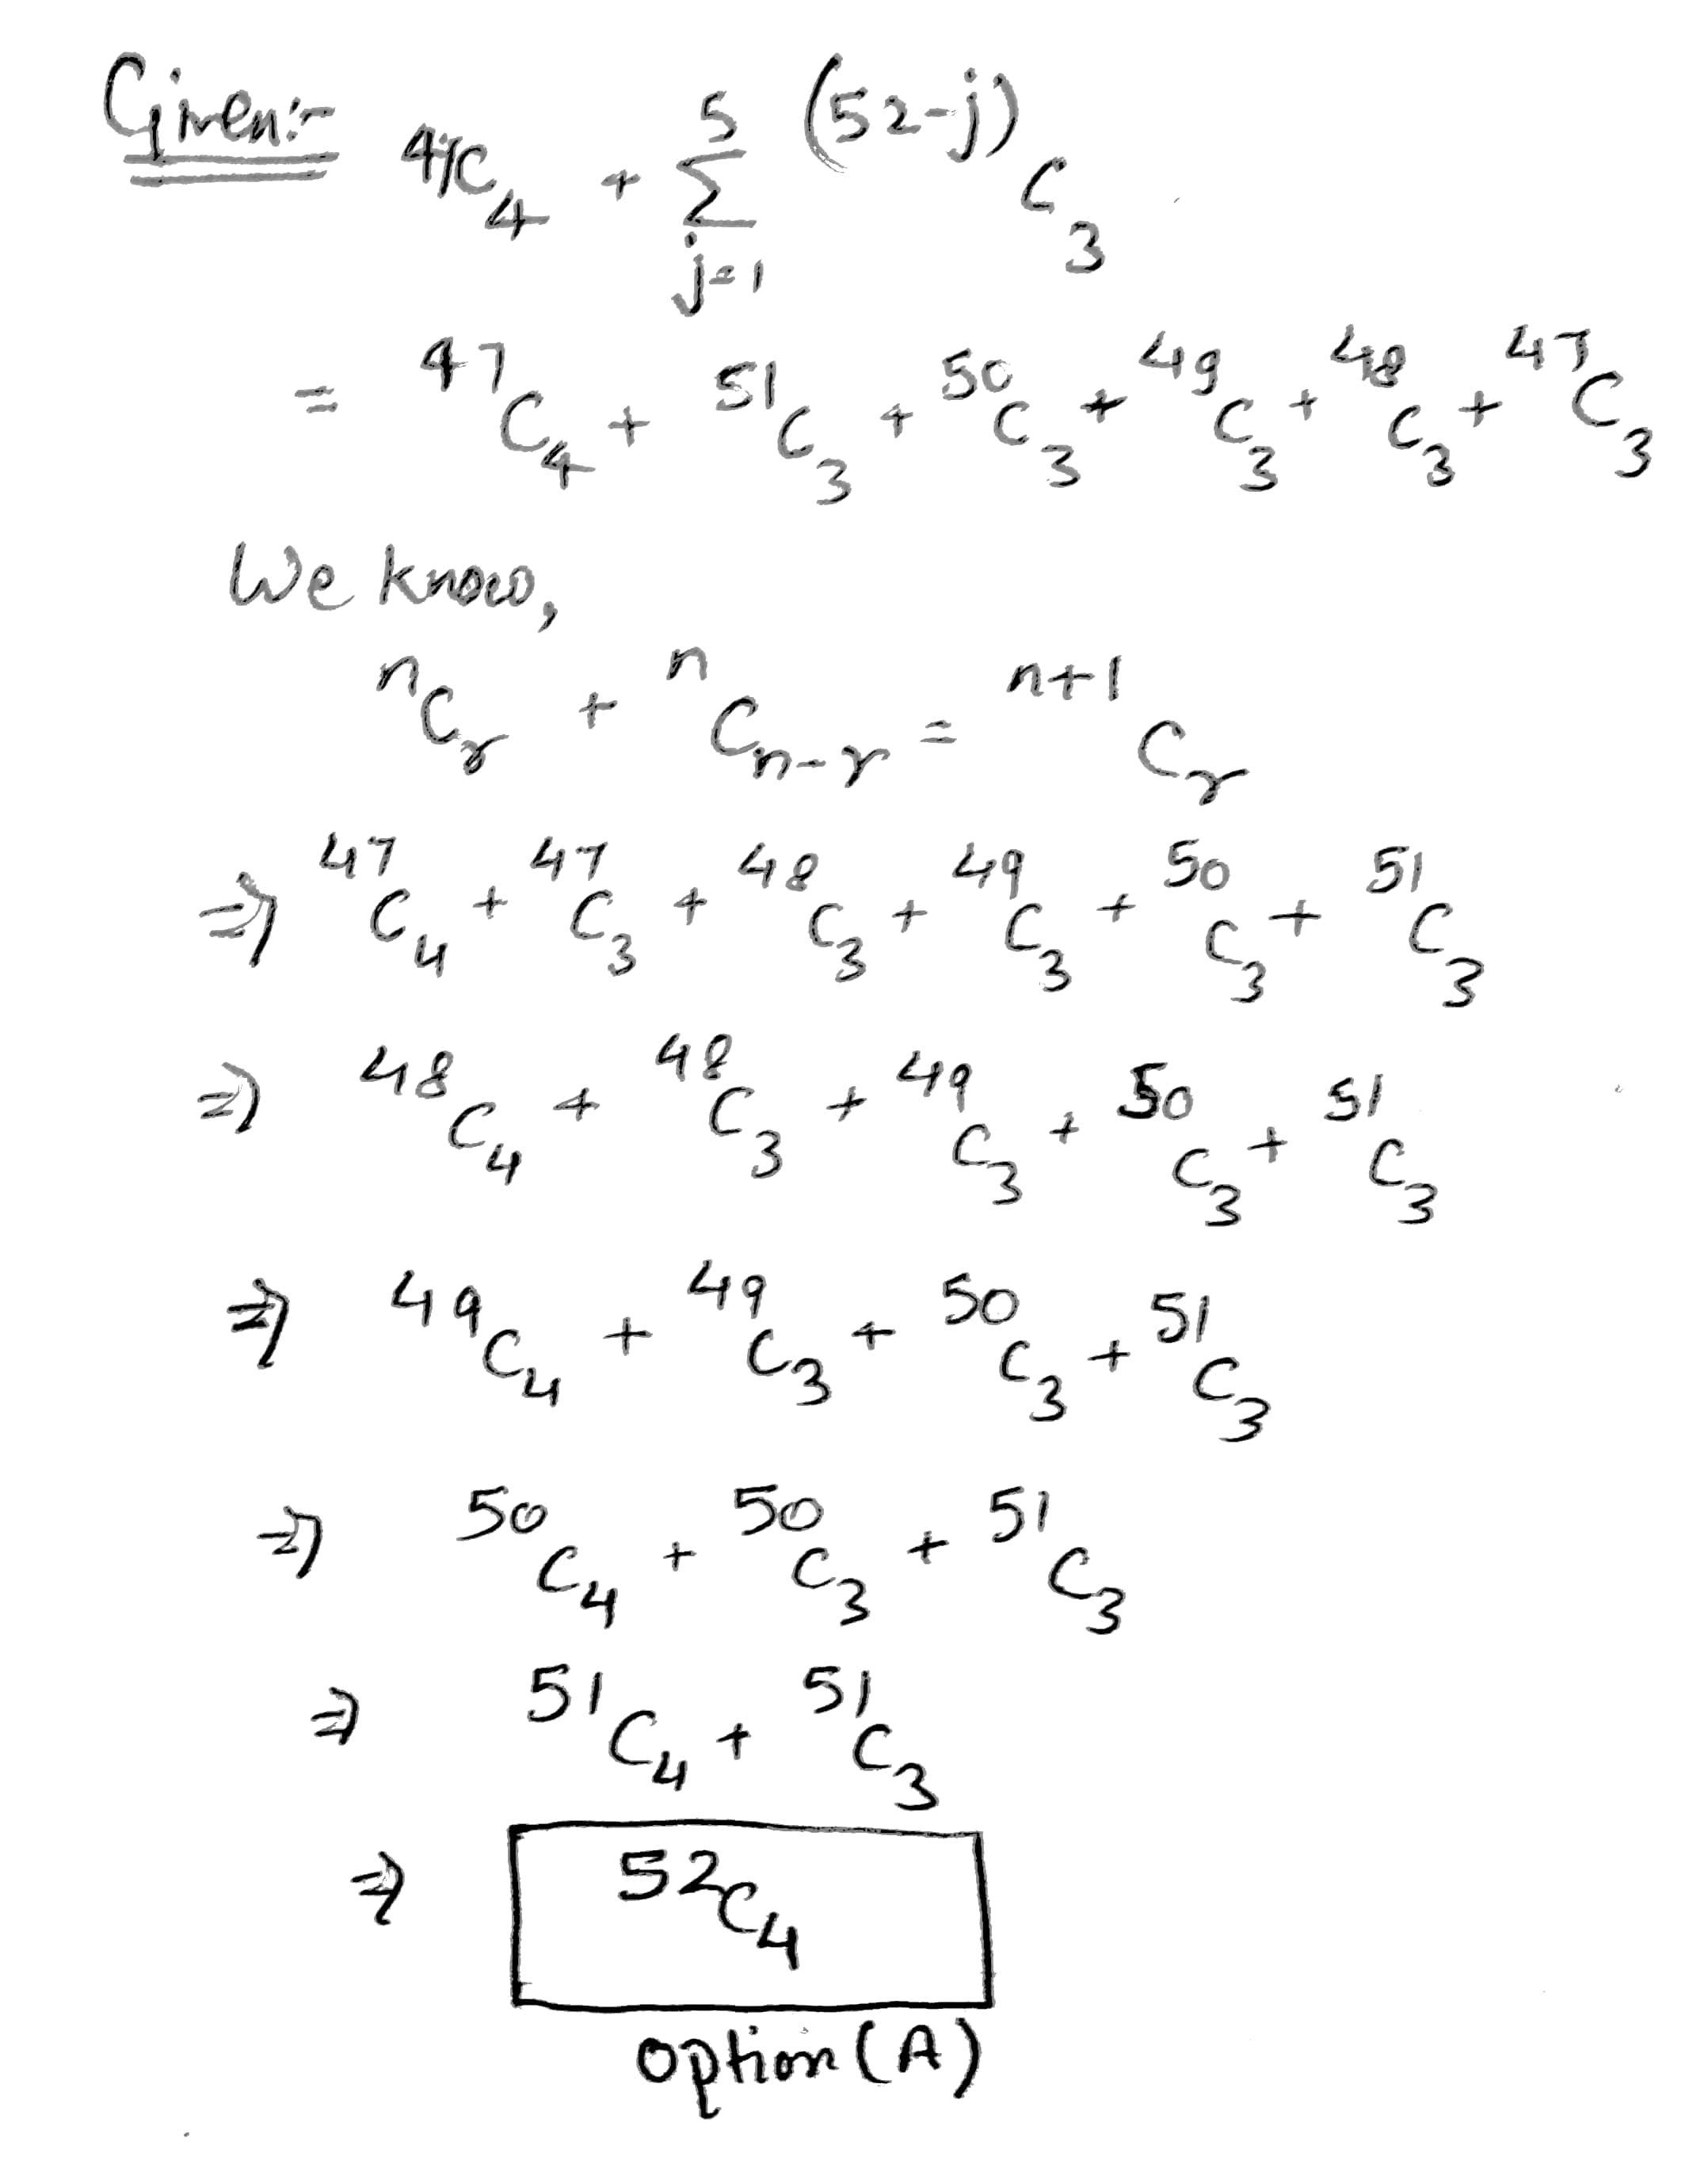 Given:- ⁴⁷C₄ + ∑_{j=1}^{5} ^{(52-j)}C₃
= ⁴⁷C₄ + ⁵¹C₃ + ⁵⁰C₃ + ⁴⁹C₃ + ⁴⁸C₃ + ⁴⁷C₃
We know,
ⁿCᵣ + ⁿC_{n-r} = ⁿ⁺¹Cᵣ
⇒ ⁴⁷C₄ + ⁴⁷C₃ + ⁴⁸C₃ + ⁴⁹C₃ + ⁵⁰C₃ + ⁵¹C₃
⇒ ⁴⁸C₄ + ⁴⁸C₃ + ⁴⁹C₃ + ⁵⁰C₃ + ⁵¹C₃
⇒ ⁴⁹C₄ + ⁴⁹C₃ + ⁵⁰C₃ + ⁵¹C₃
⇒ ⁵⁰C₄ + ⁵⁰C₃ + ⁵¹C₃
⇒ ⁵¹C₄ + ⁵¹C₃
⇒ ⁵²C₄
option (A)